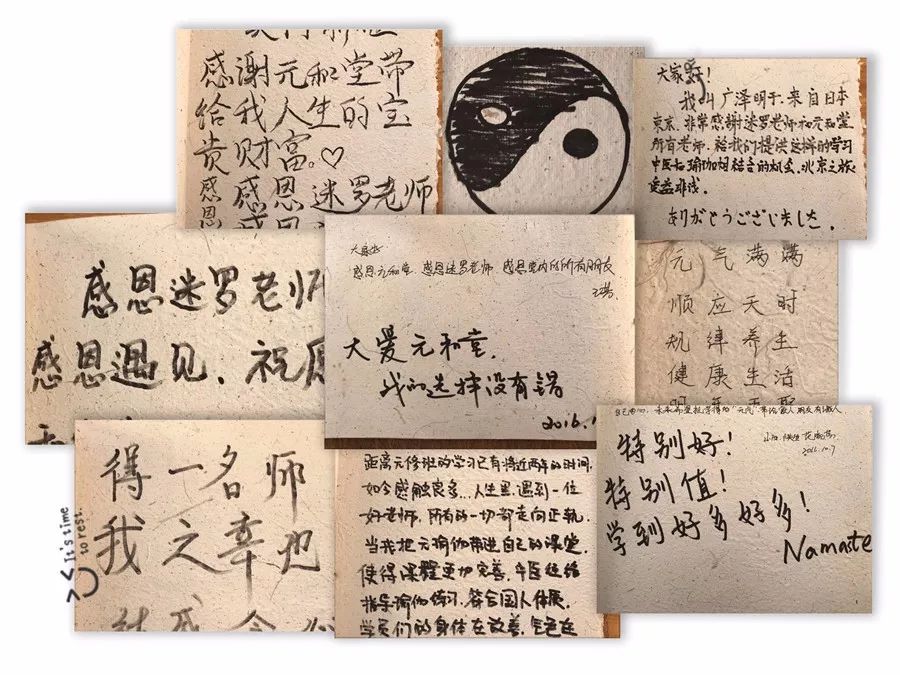 感谢元和堂带
给我人生的宝
贵财富。♡
感恩迷罗老师
大家好!
我叫广泽明子,来自日本
东京,非常感谢迷罗老师和元和堂
所有老师,给我们提供这样的学习
中医与瑜伽相结合的机会,北京之旅
受益非浅。
ありがとうございました。
感恩迷罗老师
感恩遇见,祝愿
感恩元和堂,感恩迷罗老师,感恩堂内的所有朋友
大爱元和堂,
我的选择没有错
2016.1
元气满满
顺应天时
规律养生
健康生活
得一名师
我之幸也
It's time
to rest
距离元修班的学习已有将近两年的时间,
如今感触良多...人生里,遇到一位
好老师,所有的一切都走向正轨。
当我把元瑜伽带进自己的课堂,
使得课程更加完善,中医经络
指导瑜伽练习,符合国人体质,
学员们的身体在改善,气色在
特别好!
特别值!
学到好多好多!
2016.10.7
Namaste